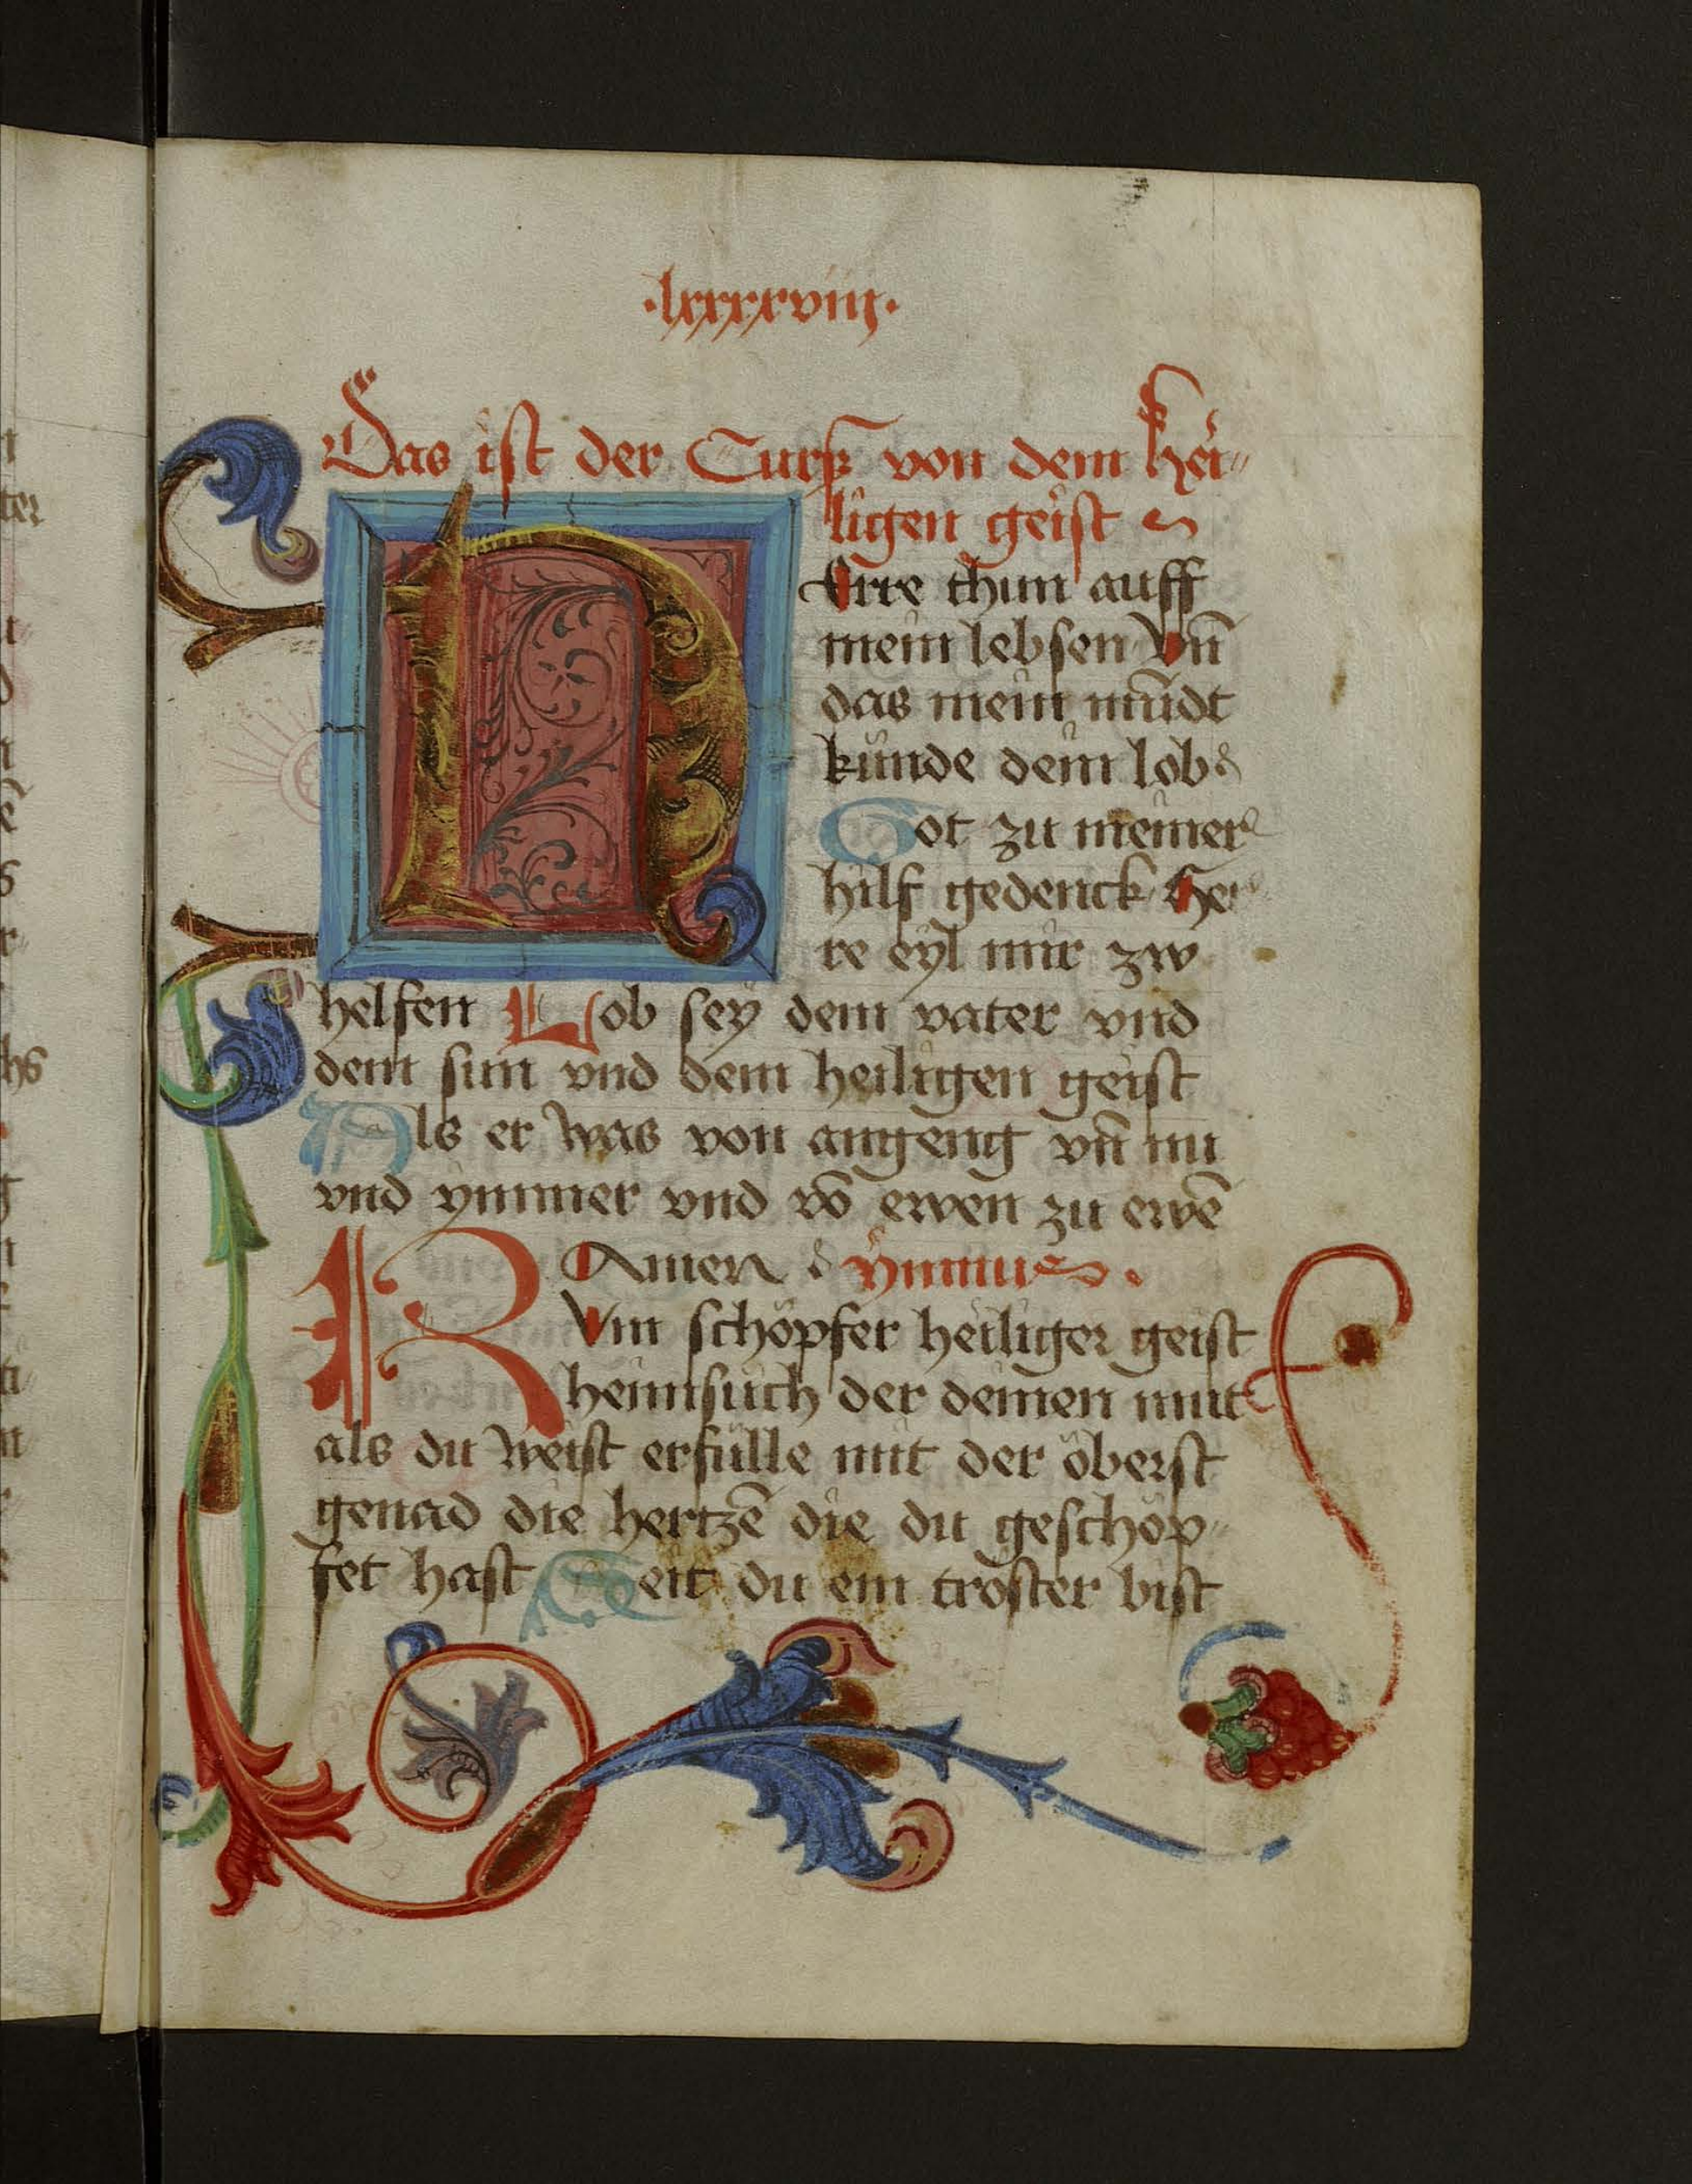 ·lxxxxviiij·
Das ist der Curß von dem hei=
ligen geist
HErre thun auff
mein lebsen Vn̄
das mein mūdt
künde dein lob
Got zu meiner
hilf gedenck Her
re eyl mir zw
helfen Lob sey dem vater vnd
dem sun vnd dem heiligen geist
Als er was von angeng vn̄ nu
vnd ymmer vnd vō ewen zu ewē
Amen ymnus
KVm schöpfer heiliger geist
heimsuch der deinen mut
als du weist erfülle mit der öberst
genad die hertzē die du geschöp=
fet hast Seit du ein tröster bist